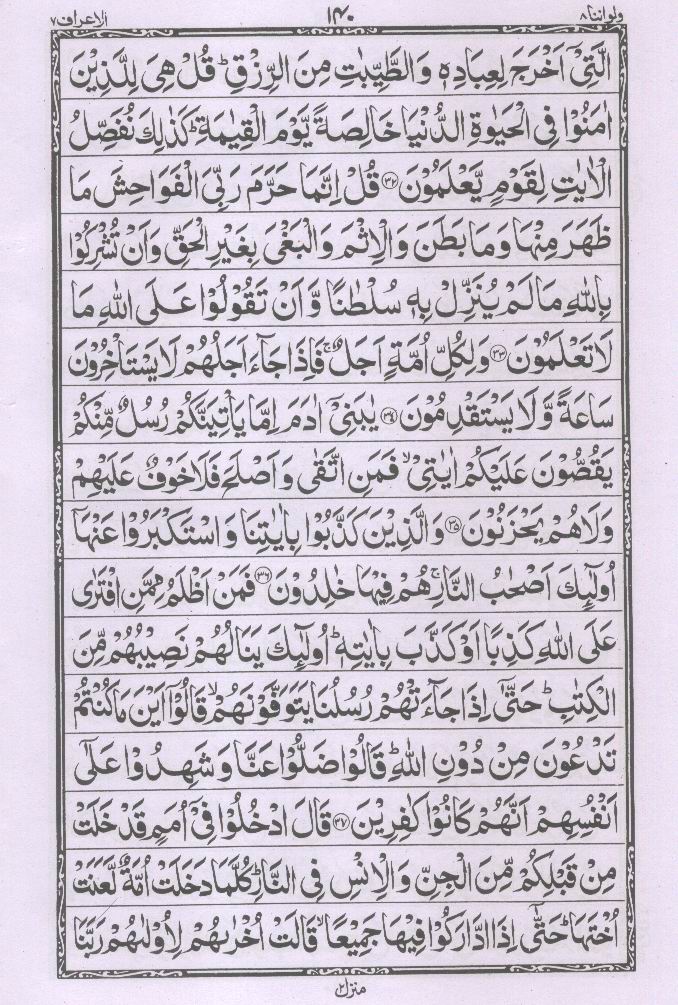 ولواننا ۸ ۱۴۰ الاعراف ۷
الَّتِیْۤ اَخْرَجَ لِعِبَادِهٖ وَالطَّیِّبٰتِ مِنَ الرِّزْقِ ؕ قُلْ هِیَ لِلَّذِیْنَ
اٰمَنُوْا فِی الْحَیٰوةِ الدُّنْیَا خَالِصَةً یَّوْمَ الْقِیٰمَةِ ؕ كَذٰلِكَ نُفَصِّلُ
الْاٰیٰتِ لِقَوْمٍ یَّعْلَمُوْنَ ۝۳۲ قُلْ اِنَّمَا حَرَّمَ رَبِّیَ الْفَوَاحِشَ مَا
ظَهَرَ مِنْهَا وَمَا بَطَنَ وَالْاِثْمَ وَالْبَغْیَ بِغَیْرِ الْحَقِّ وَاَنْ تُشْرِكُوْا
بِاللّٰهِ مَا لَمْ یُنَزِّلْ بِهٖ سُلْطٰنًا وَّاَنْ تَقُوْلُوْا عَلَی اللّٰهِ مَا
لَا تَعْلَمُوْنَ ۝۳۳ وَلِكُلِّ اُمَّةٍ اَجَلٌ ۚ فَاِذَا جَآءَ اَجَلُهُمْ لَا یَسْتَاْخِرُوْنَ
سَاعَةً وَّلَا یَسْتَقْدِمُوْنَ ۝۳۴ یٰبَنِیْۤ اٰدَمَ اِمَّا یَاْتِیَنَّكُمْ رُسُلٌ مِّنْكُمْ
یَقُصُّوْنَ عَلَیْكُمْ اٰیٰتِیْ ۙ فَمَنِ اتَّقٰی وَاَصْلَحَ فَلَا خَوْفٌ عَلَیْهِمْ
وَلَا هُمْ یَحْزَنُوْنَ ۝۳۵ وَالَّذِیْنَ كَذَّبُوْا بِاٰیٰتِنَا وَاسْتَكْبَرُوْا عَنْهَاۤ
اُولٰٓئِكَ اَصْحٰبُ النَّارِ ۚ هُمْ فِیْهَا خٰلِدُوْنَ ۝۳۶ فَمَنْ اَظْلَمُ مِمَّنِ افْتَرٰی
عَلَی اللّٰهِ كَذِبًا اَوْ كَذَّبَ بِاٰیٰتِهٖ ؕ اُولٰٓئِكَ یَنَالُهُمْ نَصِیْبُهُمْ مِّنَ
الْكِتٰبِ ؕ حَتّٰۤی اِذَا جَآءَتْهُمْ رُسُلُنَا یَتَوَفَّوْنَهُمْ ۙ قَالُوْۤا اَیْنَ مَا كُنْتُمْ
تَدْعُوْنَ مِنْ دُوْنِ اللّٰهِ ؕ قَالُوْا ضَلُّوْا عَنَّا وَشَهِدُوْا عَلٰۤی
اَنْفُسِهِمْ اَنَّهُمْ كَانُوْا كٰفِرِیْنَ ۝۳۷ قَالَ ادْخُلُوْا فِیْۤ اُمَمٍ قَدْ خَلَتْ
مِنْ قَبْلِكُمْ مِّنَ الْجِنِّ وَالْاِنْسِ فِی النَّارِ ؕ كُلَّمَا دَخَلَتْ اُمَّةٌ لَّعَنَتْ
اُخْتَهَا ؕ حَتّٰۤی اِذَا ادَّارَكُوْا فِیْهَا جَمِیْعًا ۙ قَالَتْ اُخْرٰىهُمْ لِاُوْلٰىهُمْ رَبَّنَا
منزل ۲